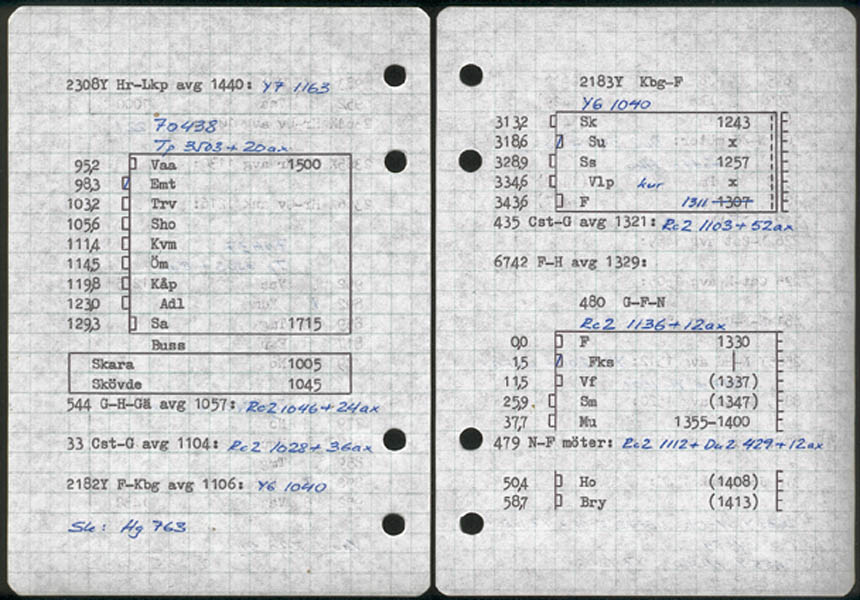 2308Y Hr-Lkp avg 1440: Y7 1163
70438
Tp 3503 + 20ax
95,2 Vaa 1500
98,3 Emt
103,2 Trv
105,6 Sho
111,4 Kvm
114,5 Öm
119,8 Kåp
123,0 Adl
129,3 Sa 1715
Buss
Skara 1005
Skövde 1045
544 G-H-Gä avg 1057: Rc2 1046 + 24ax
33 Cst-G avg 1104: Rc2 1028 + 36ax
2182Y F-Kbg avg 1106: Y6 1040
Sk: Hg 763
2183Y Kbg-F
Y6 1040
313,2 Sk 1243
318,6 Su x
328,9 Ss 1257
334,6 Vlp kur x
343,6 F 1311 1307
435 Cst-G avg 1321: Rc2 1103 + 52ax
6742 F-H avg 1329:
480 G-F-N
Rc2 1136 + 12ax
0,0 F 1330
1,5 Fks |
11,5 Vf (1337)
25,9 Sm (1347)
37,7 Mu 1355-1400
479 N-F möter: Rc2 1112 + Du2 429 + 12ax
50,4 Ho (1408)
58,7 Bry (1413)